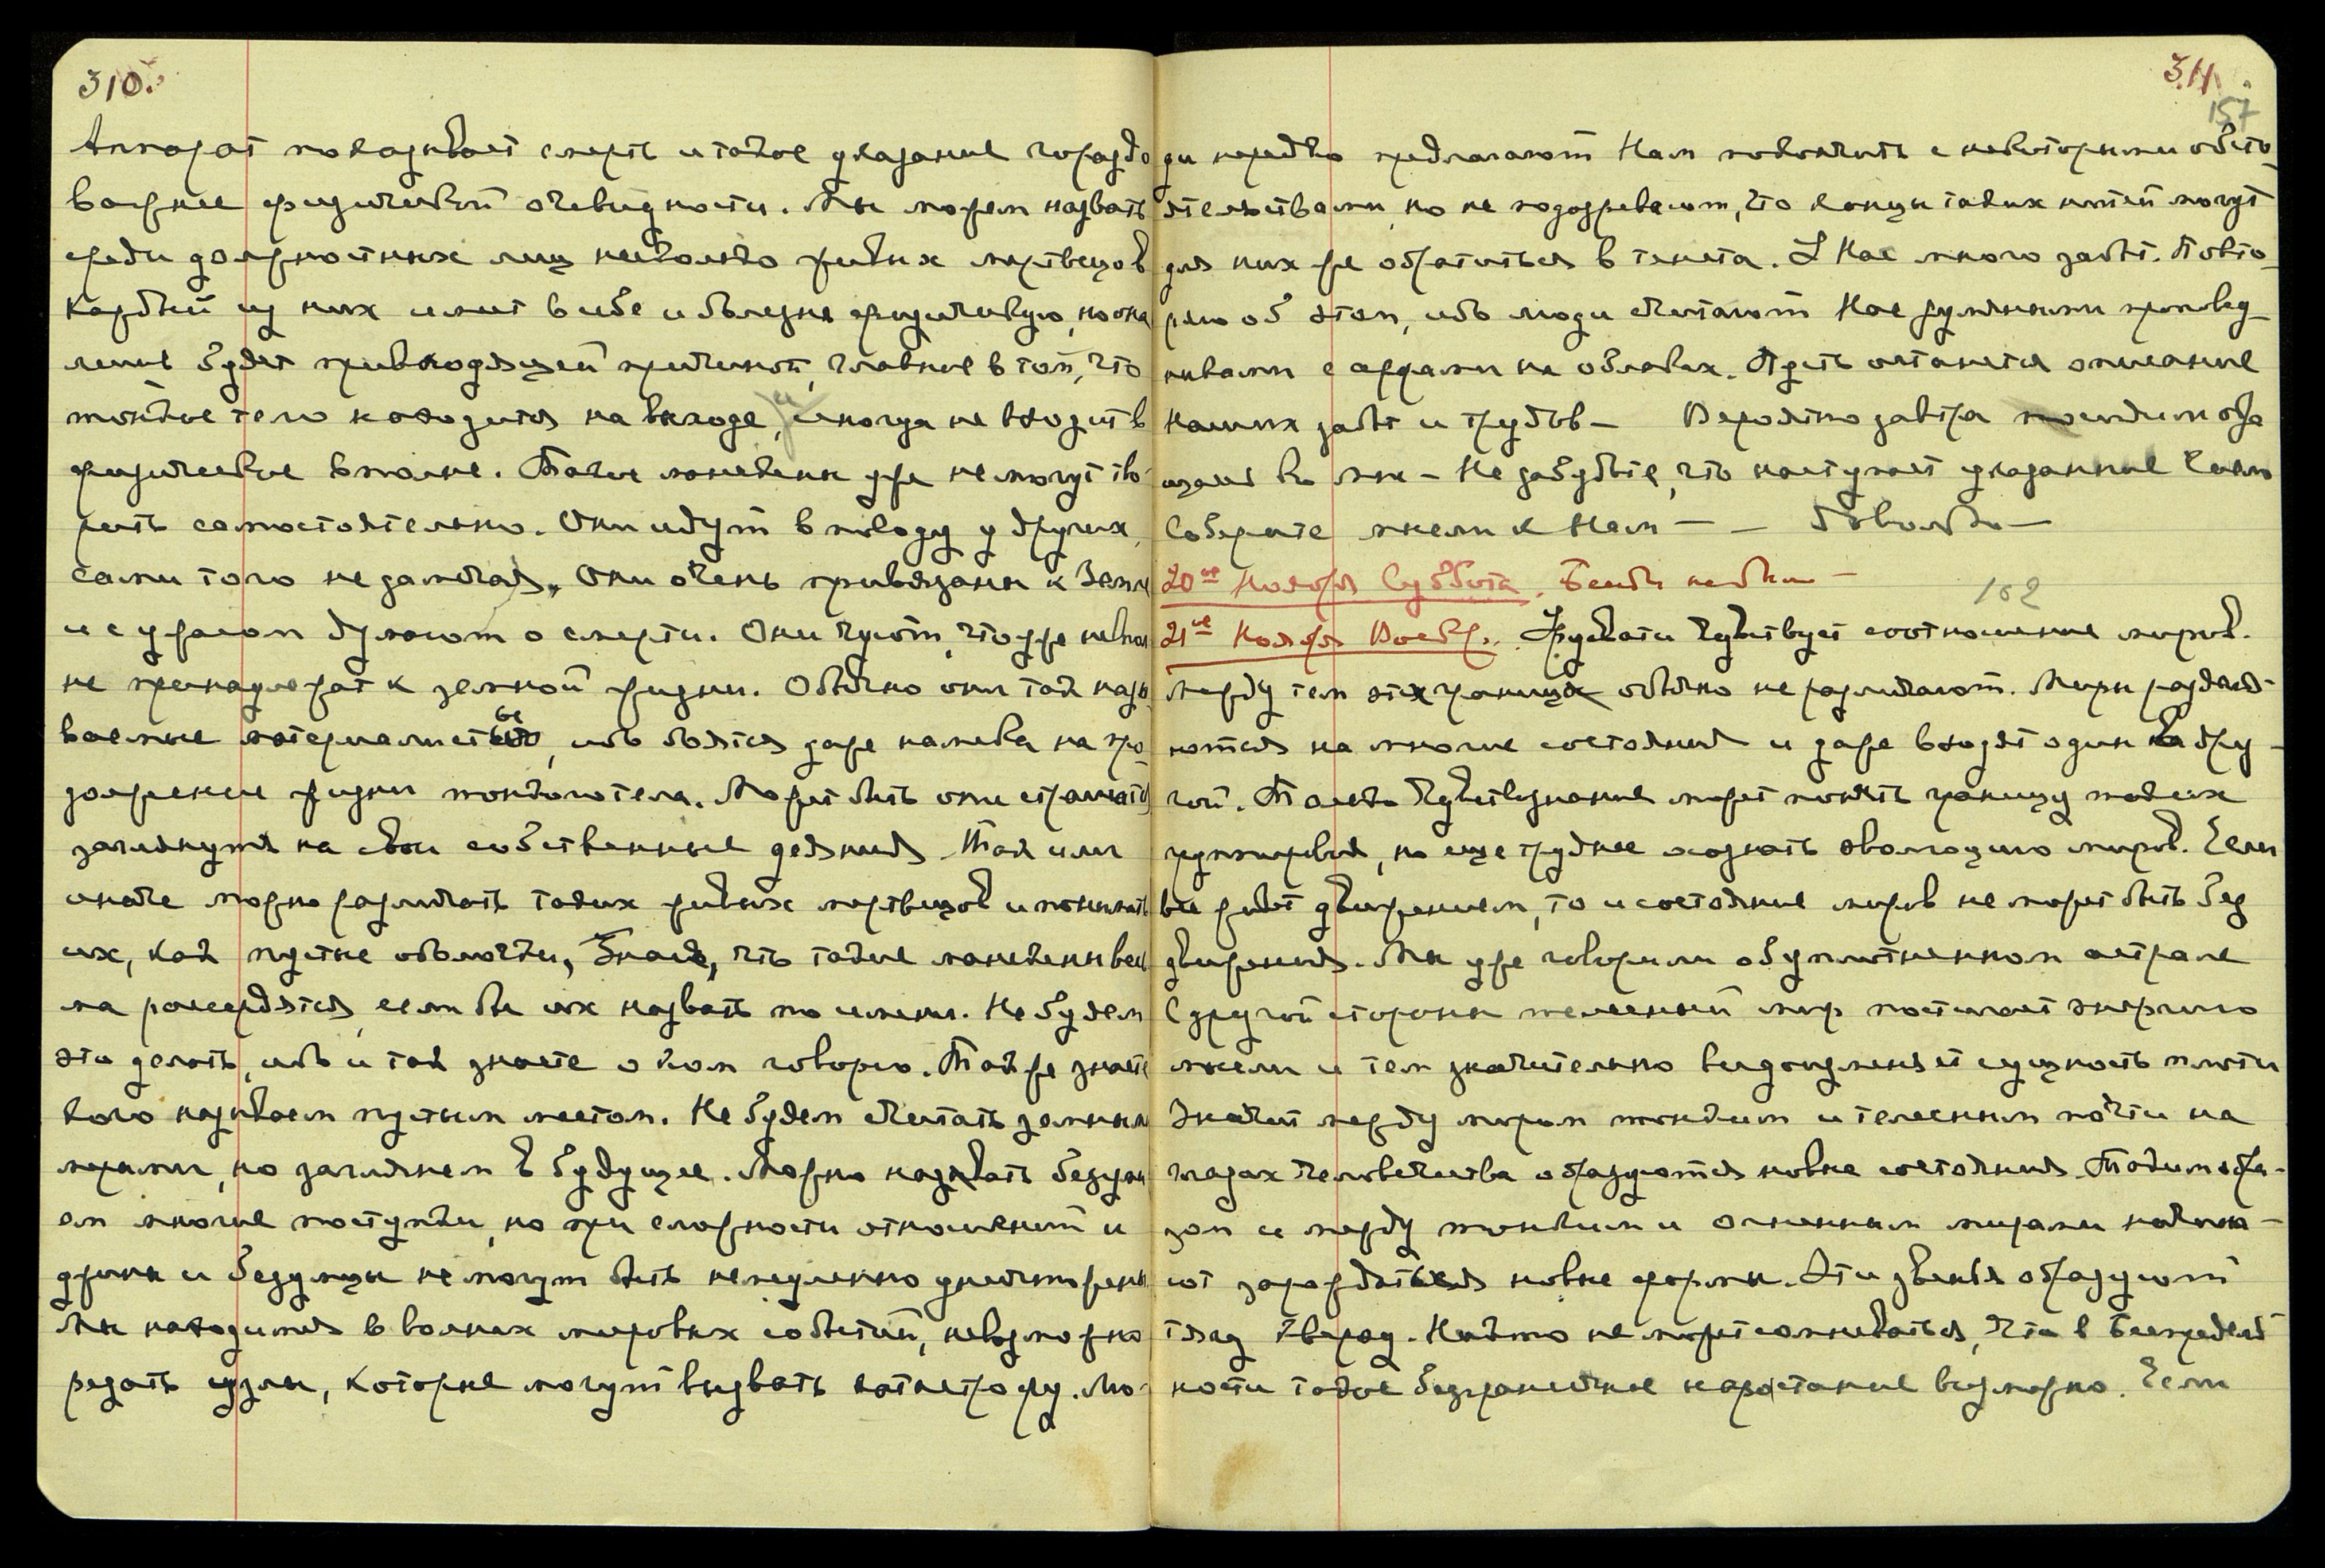 310.
Аппарат показывает смерть и такое указание гораздо
важнее физической очевидности. Мы можем назвать
среди должностных лиц несколько живых мертвецов
Каждый из них имеет в себе и болезнь физическую, но она
лишь будет привходящей причиной, главное в том, что
тонкое тело находится на выходе, и иногда не входит в
физическое вполне. Такие манекены уже не могут тво-
рить самостоятельно. Они идут в поводу у других,
сами того не замечая. Они очень привязаны к Земле
и с ужасом думают о смерти. Они чуют, что уже
не принадлежат к земной жизни. Обычно они так назы-
ваемые материалисты, ибо боятся даже намека на про-
должение жизни тонкого тела. Может быть они страшатся
заглянуть на свои собственные деяния. Так или
иначе можно различать таких живых мертвецов и понимать
их, как пустые оболочки, Зная, что такие манекены весь-
ма рассердятся, если бы их назвать по имени. Не будем
это делать, ибо и так знаете о ком говорю. Также знаете
кого называем пустым местом. Не будем считать земными
мерами, но заглянем в будущее. Можно назвать безуми-
ем многие поступки, но при сложности отношений и
джины и безумцы не могут быть немедленно уничтожены
Мы находимся в волнах мировых событий, невозможно
резать узлы, которые могут вызвать катастрофу. Лю-
311.
157
ди нередко предлагают Нам покончить с некоторыми обсто-
ятельствами, но не подозревают, что концы таких нитей могут
для них же обратиться в тенета. У Нас много забот. Повто-
ряю об этом, ибо люди считают Нас
с арфами на облаках. Пусть останется описание
Наших забот и трудов — Вероятно завтра
мы — Не забудьте, что наступает указанное Число
Соберите мысли к Нам — — Довольно —
20ое Ноября Суббота. Беседы не было —
162
21ое Ноября Воскр. Урусвати чувствует соотношение миров.
Между тем эти границы обычно не различают. Миры разделя-
ются на многие состояния и даже входят один в дру-
гой. Только чувствознание может понять границу таких
группировок, но еще труднее осознать эволюцию миров. Если
все живет движением, то и состояние миров не может быть без
движения. Мы уже говорили об уплотненном астрале
С другой стороны телесный мир постигает энергию
мысли и тем значительно видоизменяет сущность плоти
Значит между миром тонким и телесным почти на
глазах человечества образуются новые состояния. Таким обра-
зом и между тонким и огненным мирами начина-
ют зарождаться новые формы. Эти звенья образуют
Никто не может сомневаться, что в Беспредель-
ности такое безграничное нарастание возможно. Если